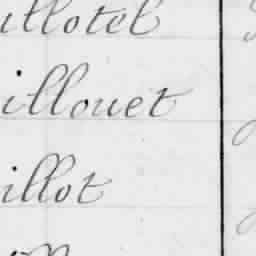 illotel
illouet
illot